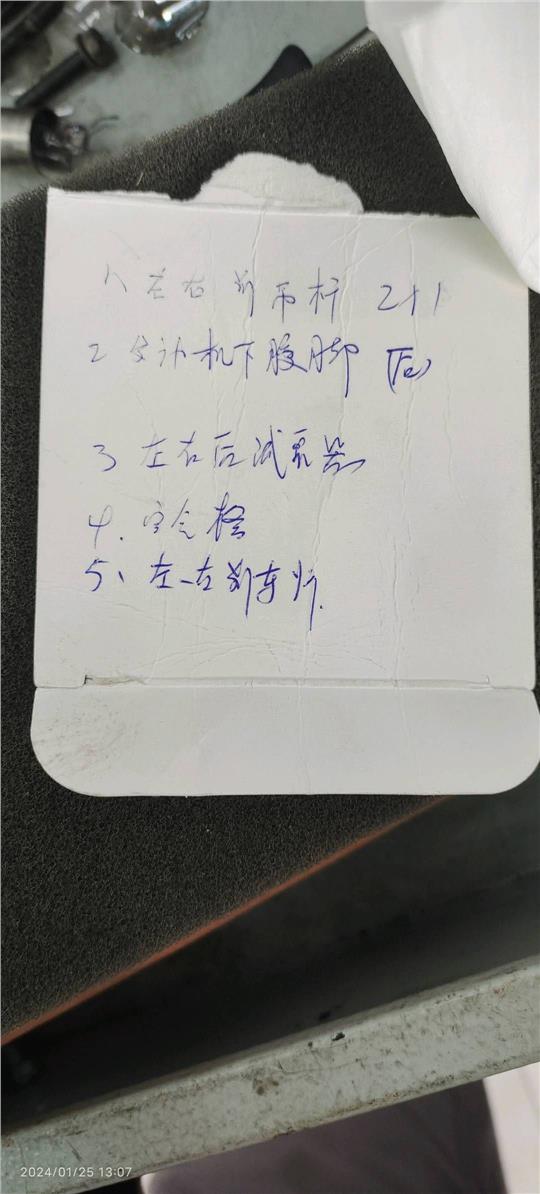 1、左右前吊杆 2个
2 发动机下胶脚 (后)
3 左右后减震器
4. 空气格
5、左-右前车灯.
2024/01/25 13:07